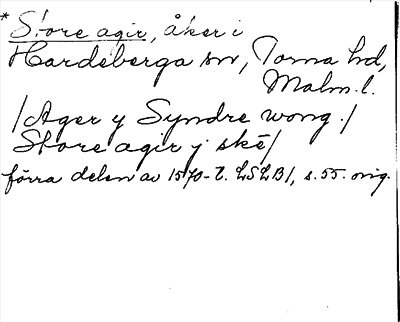 * Store agir, åker i
Hardeberga sn, Torna hd,
Malm. l.
/Ager y Syndre wong./
Store agir y skē/
förra delen av 1570-t. LSLB/, s. 55. orig.